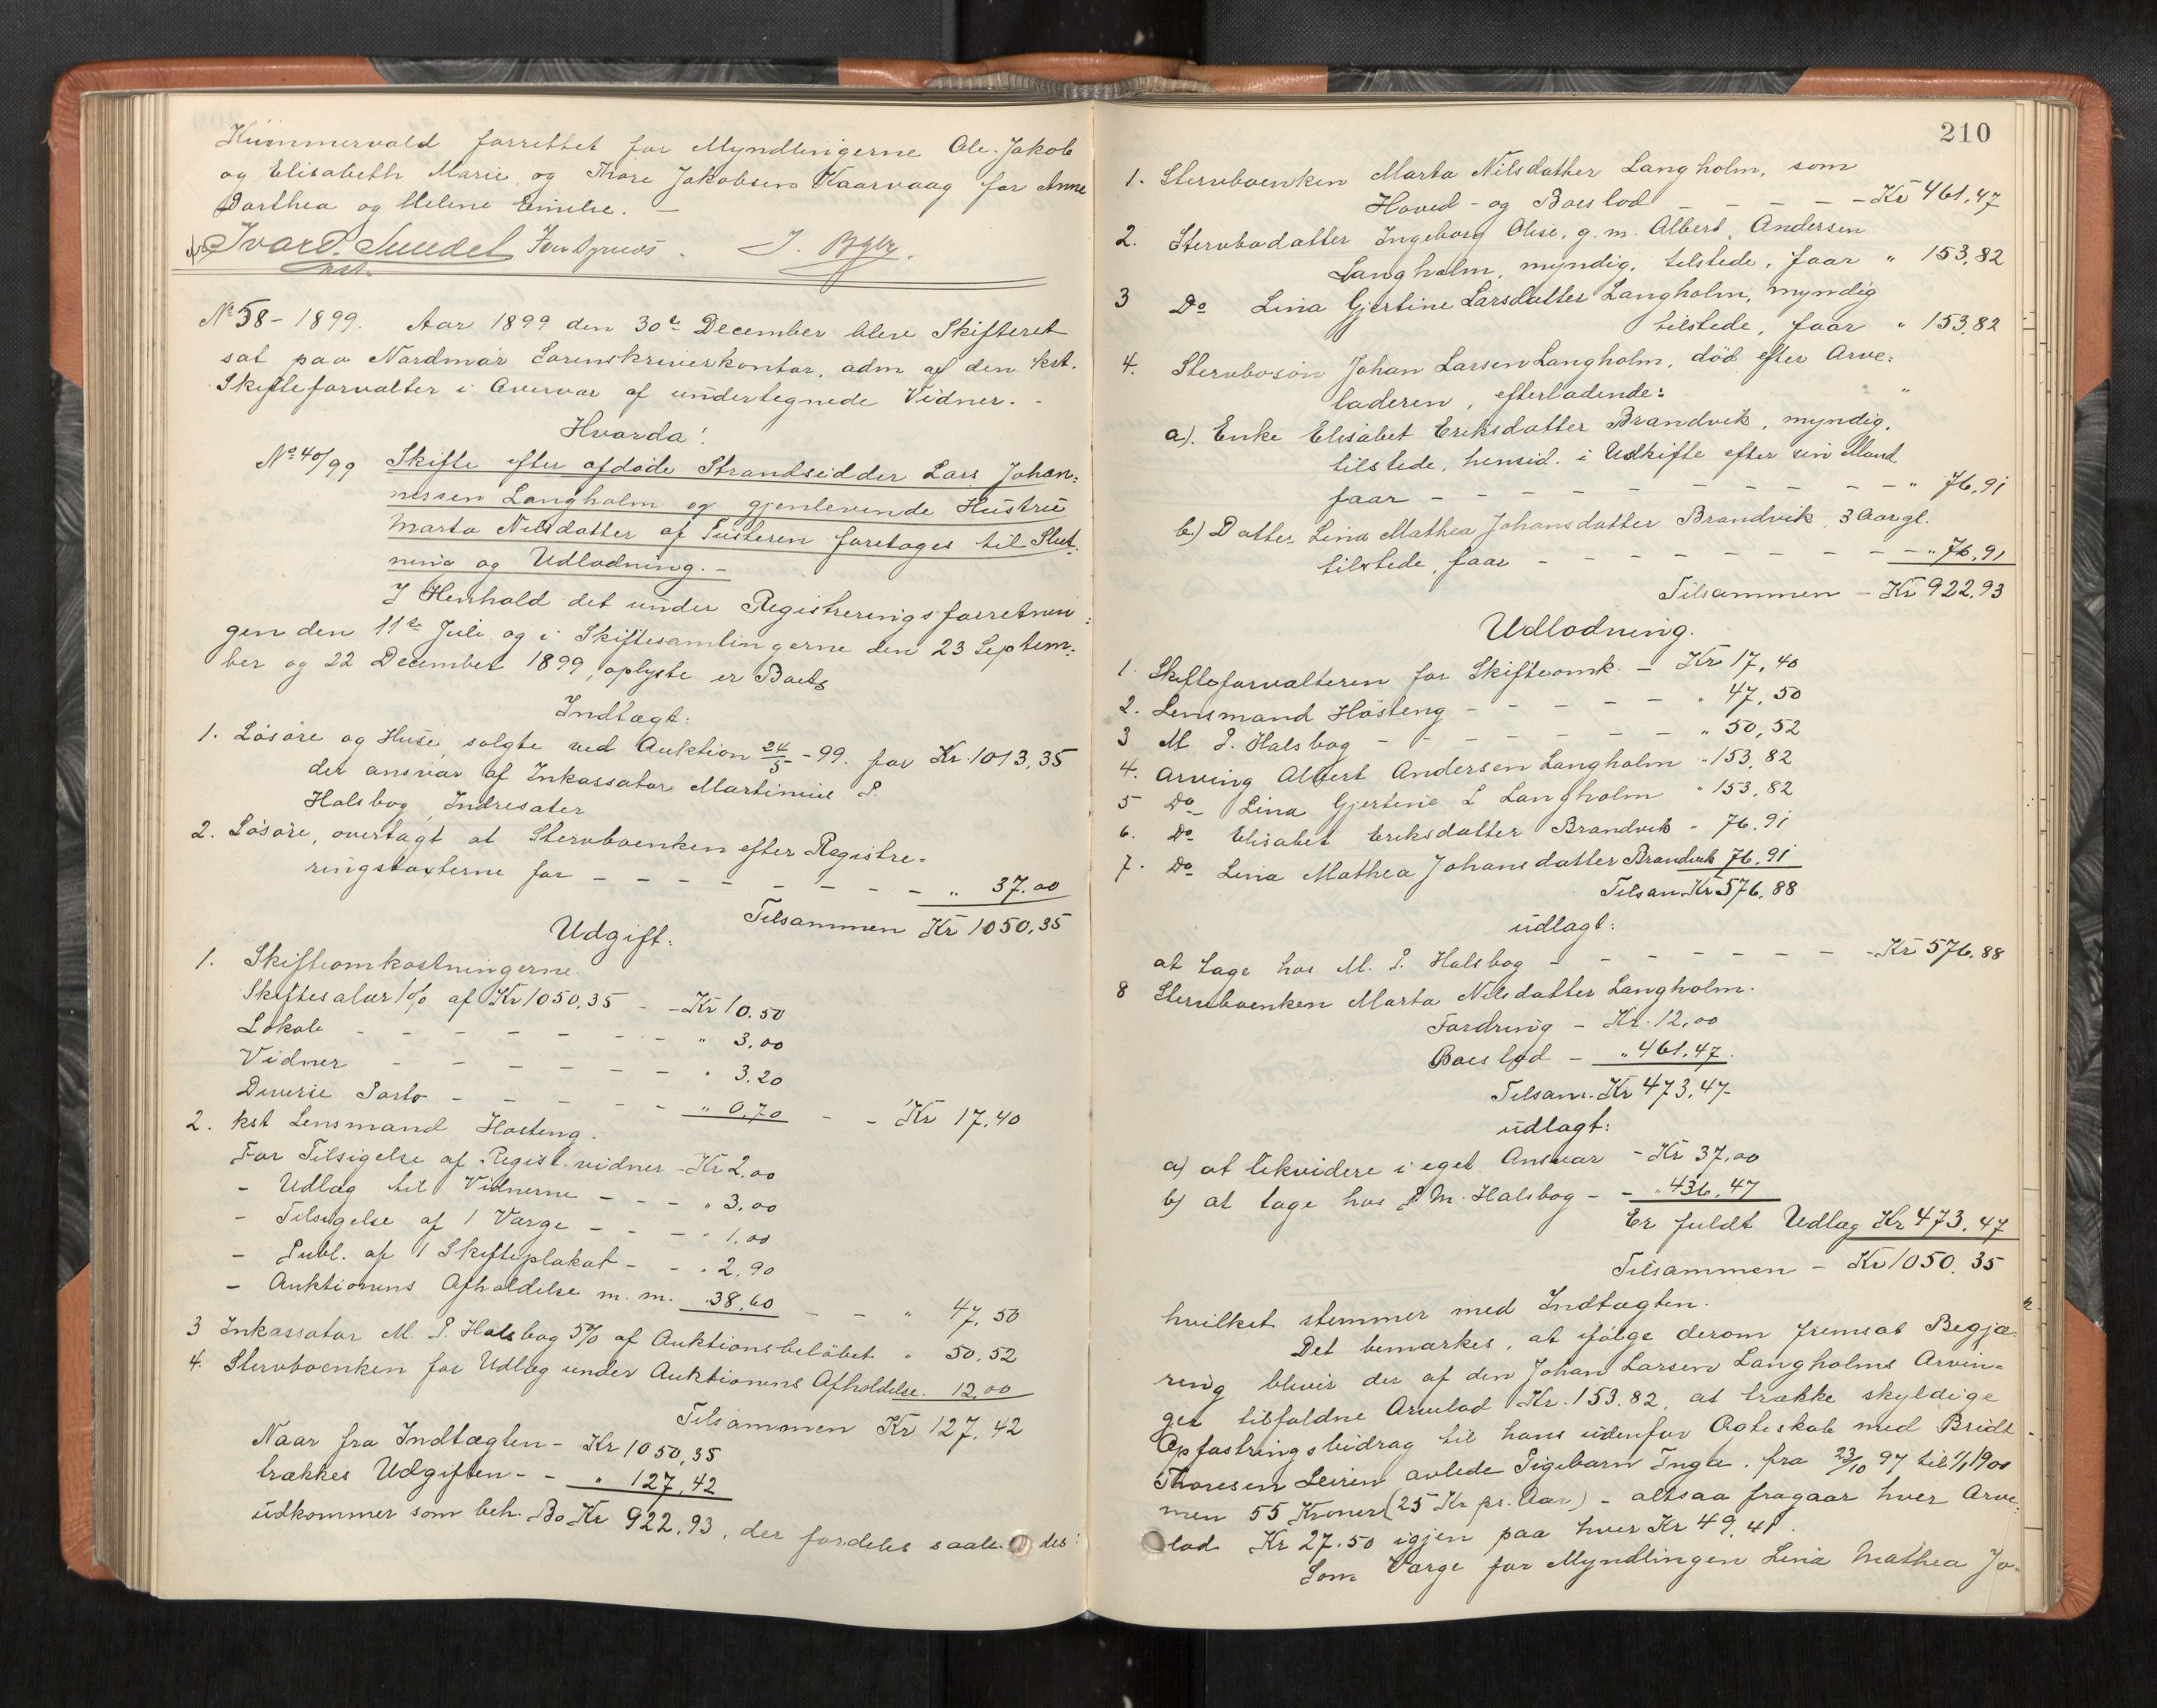 Kummervold forrettet for Myndlingerne Ole Jakob
og Elisabeth Marie og Thore Jakobsen Kaarvaag for Anne
Dorthea og Helene Emelie. –
Ivar D. Sundet J. Bøe.
kst.
No 58 – 1899. Aar 1899 den 30te December blev Skifteret
sat paa Nordmør Sorenskriverkontor, adm af den kst.
Skifteforvalter i Overvær af undertegnede Vidner. -
Hvorda!
No 40/99 Skifte efter afdøde Strandsidder Lars Johan=
nessen Langholm og gjenlevende Hustru
Marta Nilsdatter af Tusteren foretages til Slut=
ning og Udlodning. –
I Henhold det under Registreringsforretnin=
gen den 11te Juli og i Skiftesamlingerne den 23 Septem=
ber og 22 December 1899, oplyste er Boets
Indtægt:
1. Løsøre og Huse, solgte ved Auktion 24/5 - 99. for Kr. 1013,35
der ansvar af Inkassator Martinius P.
Halsbog, Indresæter
2. Løsøre, overtagt at Stervboenken efter Registre=
ringstaxterne for – – – – – – – – „ 37.00
Tilsammen Kr 1050,35
Udgift:
1. Skifteomkostningerne.
Skiftesalær 1% af Kr 1050,35 - – Kr 10.50
Lokale – – – – – – – „ 3.00
Vidner – – – – – – „ 3.20
Diverse Porto – – – – – „ 0,70 – – Kr 17.40
2. kst Lensmand Høsteng.
For Tilsigelse af Regist. vidner – Kr 2,00
– Udlæg til Vidnerne – – – „ 3.00
– Tilsigelse af 1 Værge – – – „ 1.00
– Publ. af 1 Skifteplakat – – „ 2.90
– Auktionens Afholdelse m. m. „ 38,60 – – „ 47,50
3 Inkassator M. P. Halsbog 5% af Auktionsbeløbet „ 50,52
4. Stervboenken for Udlæg under Auktionens Afholdelse. 12,00
Tilsammen Kr 127,42
Naar fra Indtægten – Kr 1050,35
trækkes Udgiften – – „ 127,42
udkommer som beh. Bo Kr 922.93, der fordeles saale- des:
210
1. Stervboenken Marta Nilsdatter Langholm, som
Hoved- og Boeslod – – – – – Kr 461,47
2. Stervbodatter Ingeborg Olise, g. m. Albert Andersen
Langholm, myndig, tilstede, faar „ 153,82
3 Do Lina Gjertine Larsdatter Langholm, myndig
tilstede, faar „ 153,82
4. Stervbosøn Johan Larsen Langholm, død efter Arve=
laderen, efterladende: „
a). Enke Elisabet Eriksdatter Brandvik, myndig,
tilstede, hensid. i Uskifte efter sin Mand
faar – – – – – – – – – – „ 76,91
b.) Datter Lina Mathea Johansdatter Brandvik, 3 Aar gl.
tilstede, faar – – – – – – – – – „ 76,91
Tilsammen – Kr 922.93
Udlodning.
1. Skifteforvalteren for Skifteomk. – Kr 17,40
2. Lensmand Høsteng – – – – – „ 47,50
3 M P. Halsbog – – – – – – – „ 50,52
4. Arving Albert Andersen Langholm „ 153,82
5 Do Lina Gjertine L Langholm „ 153,82
6. Do Elisabet Eriksdatter Brandvik „ 76,91
7. Do Lina Mathea Johansdatter Brandvik 76,91
Tilsam Kr 576,88
udlagt:
at tage hos M. P. Halsbog – – – – – – – Kr 576,88
8 Stervboenken Marta Nilsdatter Langholm.
Fordring – Kr. 12,00
Boeslod – „ 461,47.
Tilsam. Kr 473,47
udlagt:
a) at likvidere i eget Ansvar – Kr 37,00
b) at tage hos P. M. Halsbog – – „ 436,47
Er fuldt Udlæg Kr 473,47
Tilsammen – Kr 1050.35
hvilket stemmer med Indtægten.
Det bemærkes, at ifølge derom fremsat Begjæ=
ring bliver der af den Johan Larsen Langholms Arvin=
ger tilfaldne Arvelod Kr. 153.82, at trække skyldige
Opfostringsbidrag til hans udenfor Ægteskab med Bridt
Thoresen Leiren avlede Pigebarn Inga, fra 23/10 97 til 1/1 1900
men 55 Kroner (25 Kr pr. Aar) – altsaa fragaar hver Arve=
lod Kr 27.50 igjen paa hver Kr 49.41.
Som Værge for Myndlingen Lina Mathea Jo-